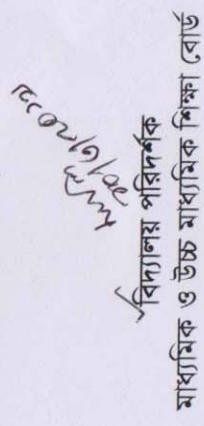 বিদ্যালয় পরিদর্শক
মাধ্যমিক ও উচ্চ মাধ্যমিক শিক্ষা বোর্ড